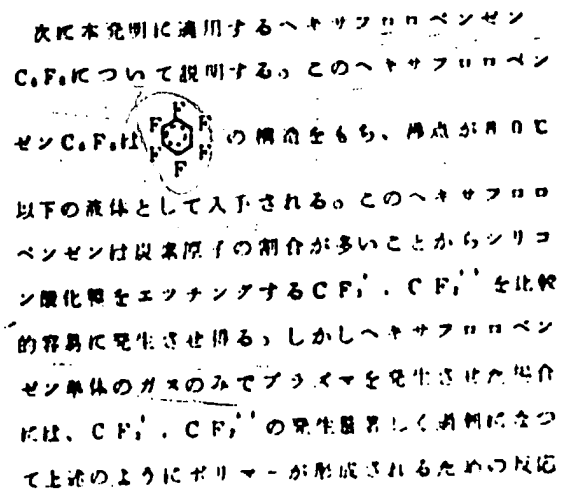 次に本発明に適用するヘキサフロロベンゼン
C₆F₆について説明する。このヘキサフロロベン
ゼンC₆F₆は F F F F F F の構造をもち、沸点が80℃
以下の液体として入手される。このヘキサフロロ
ベンゼンは炭素原子の割合が多いことからシリコ
ン酸化膜をエッチングするCF を比較
的容易に発生させ得る。しかしヘキサフロロベン
ゼン単体のガスのみでプラズマを発生させた場合
には、 の発生が著しく過剰になつ
て上述のようにポリマーが形成されるための反応